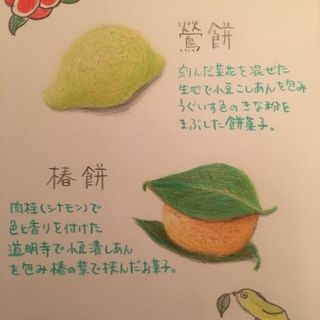 鶯餅
刻んだ菜花を混ぜた
生地で小豆こしあんを包み
うぐいす色のきな粉を
まぶした餅菓子。
椿餅
肉桂(シナモン)で
色と香りを付けた
道明寺で小豆漬しあん
を包み椿の葉で挟んだお菓子。